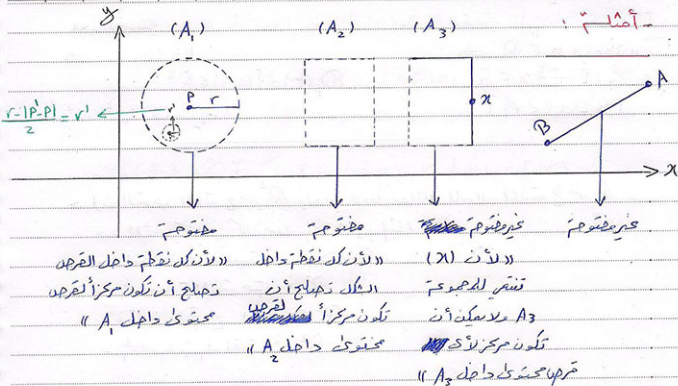 - أمثلة :
y
(A₁) (A₂) (A₃)
P r
r'
(r-|P'-P|)/2 = r'
x
A
B
x
مفتوحة
«لأن كل نقطة داخل القرص
تصلح أن تكون مركزاً لقرص
محتوى داخل A₁»
مفتوحة
«لأن كل نقطة داخل
الشكل تصلح أن
تكون مركزاً لقرص
محتوى داخل A₂»
غير مفتوحة
«لأن (x)
تنتمي للمجموعة
A₃ ولا يمكن أن
تكون مركز لأي
قرص محتوى داخل A₃»
غير مفتوحة